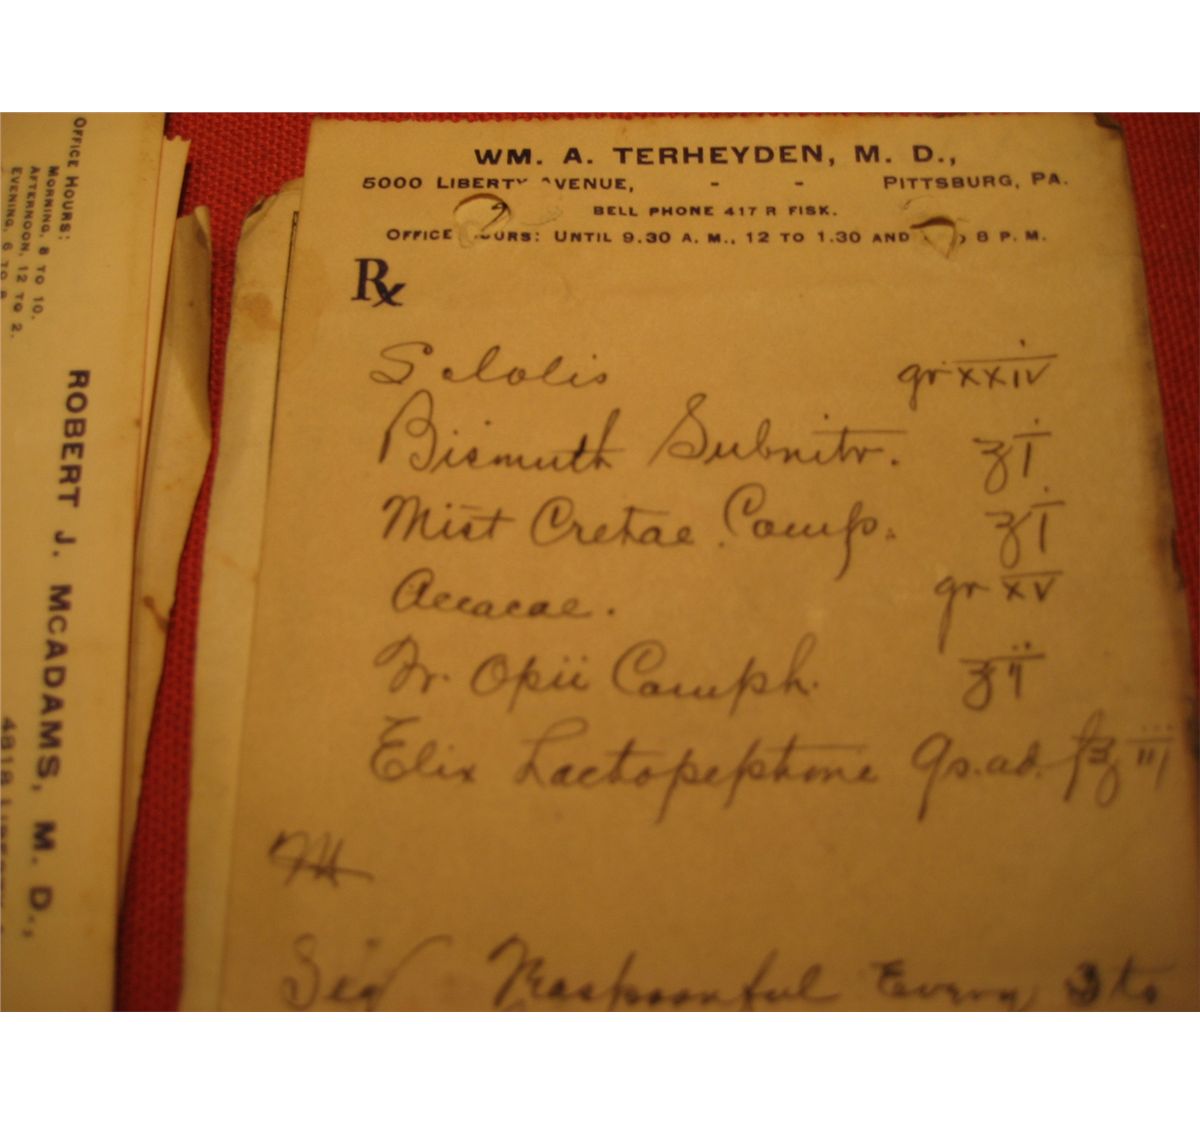 WM. A. TERHEYDEN, M. D.,
5000 LIBERTY AVENUE, - - PITTSBURG, PA.
BELL PHONE 417 R FISK.
OFFICE HOURS: UNTIL 9.30 A. M., 12 TO 1.30 AND 8 P. M.
Rx
Salolis gr xxiv
Bismuth Subnitr. ʒ i
Mist Cretae Comp. ʒ i
Accacae. gr xv
Tr. Opii Camph. ʒ ii
Elix Lactopeptine qs. ad. f℥ iii
M
Sig Teaspoonful Every 3 to
OFFICE HOURS:
MORNING, 8 TO 10.
AFTERNOON, 12 TO 2.
EVENING, 6 TO 8
ROBERT J. MCADAMS, M. D.,
4818